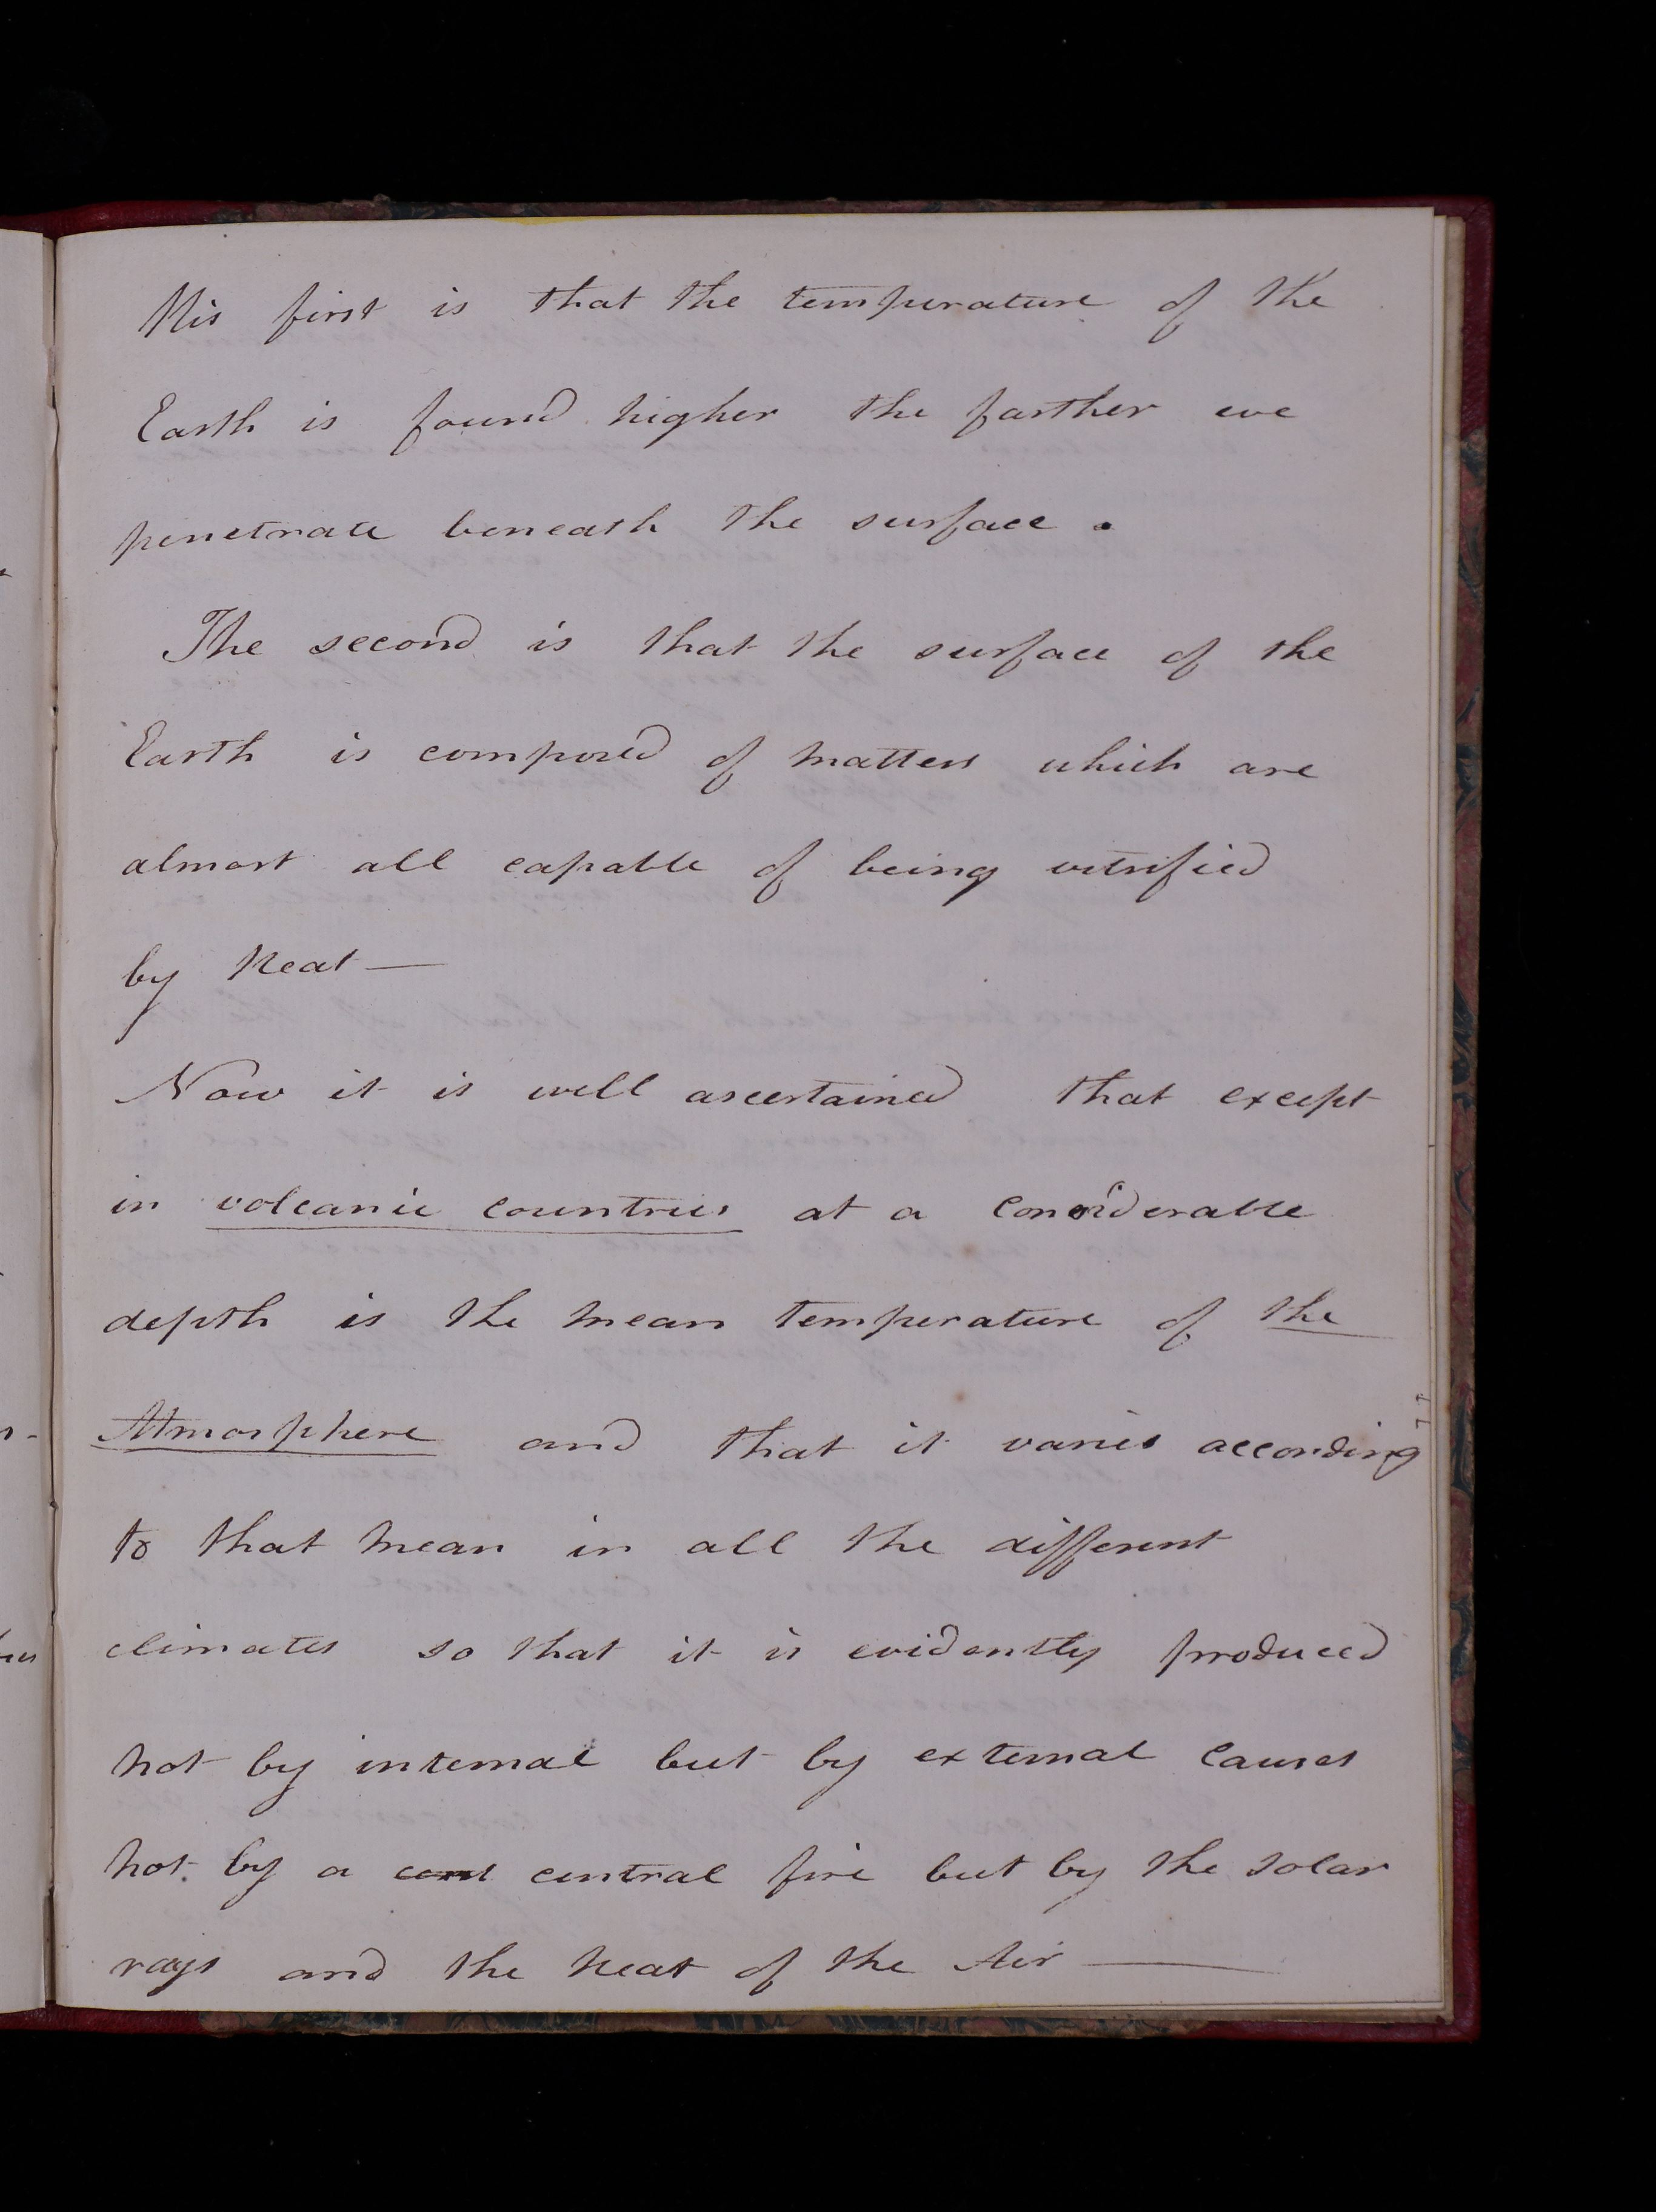 His first is that the temperature of the
Earth is found higher the farther we
penetrate beneath the surface .
The second is that the surface of the
Earth is composed of matters which are
almost all capable of being vitrified
by heat —
Now it is well ascertained that except
in volcanic countries at a considerable
depth is the mean temperature of the
Atmosphere and that it varies according
to that mean in all the different
climates so that it is evidently produced
not by internal but by external causes
not by a cent central fire but by the solar
rays and the heat of the Air —
77